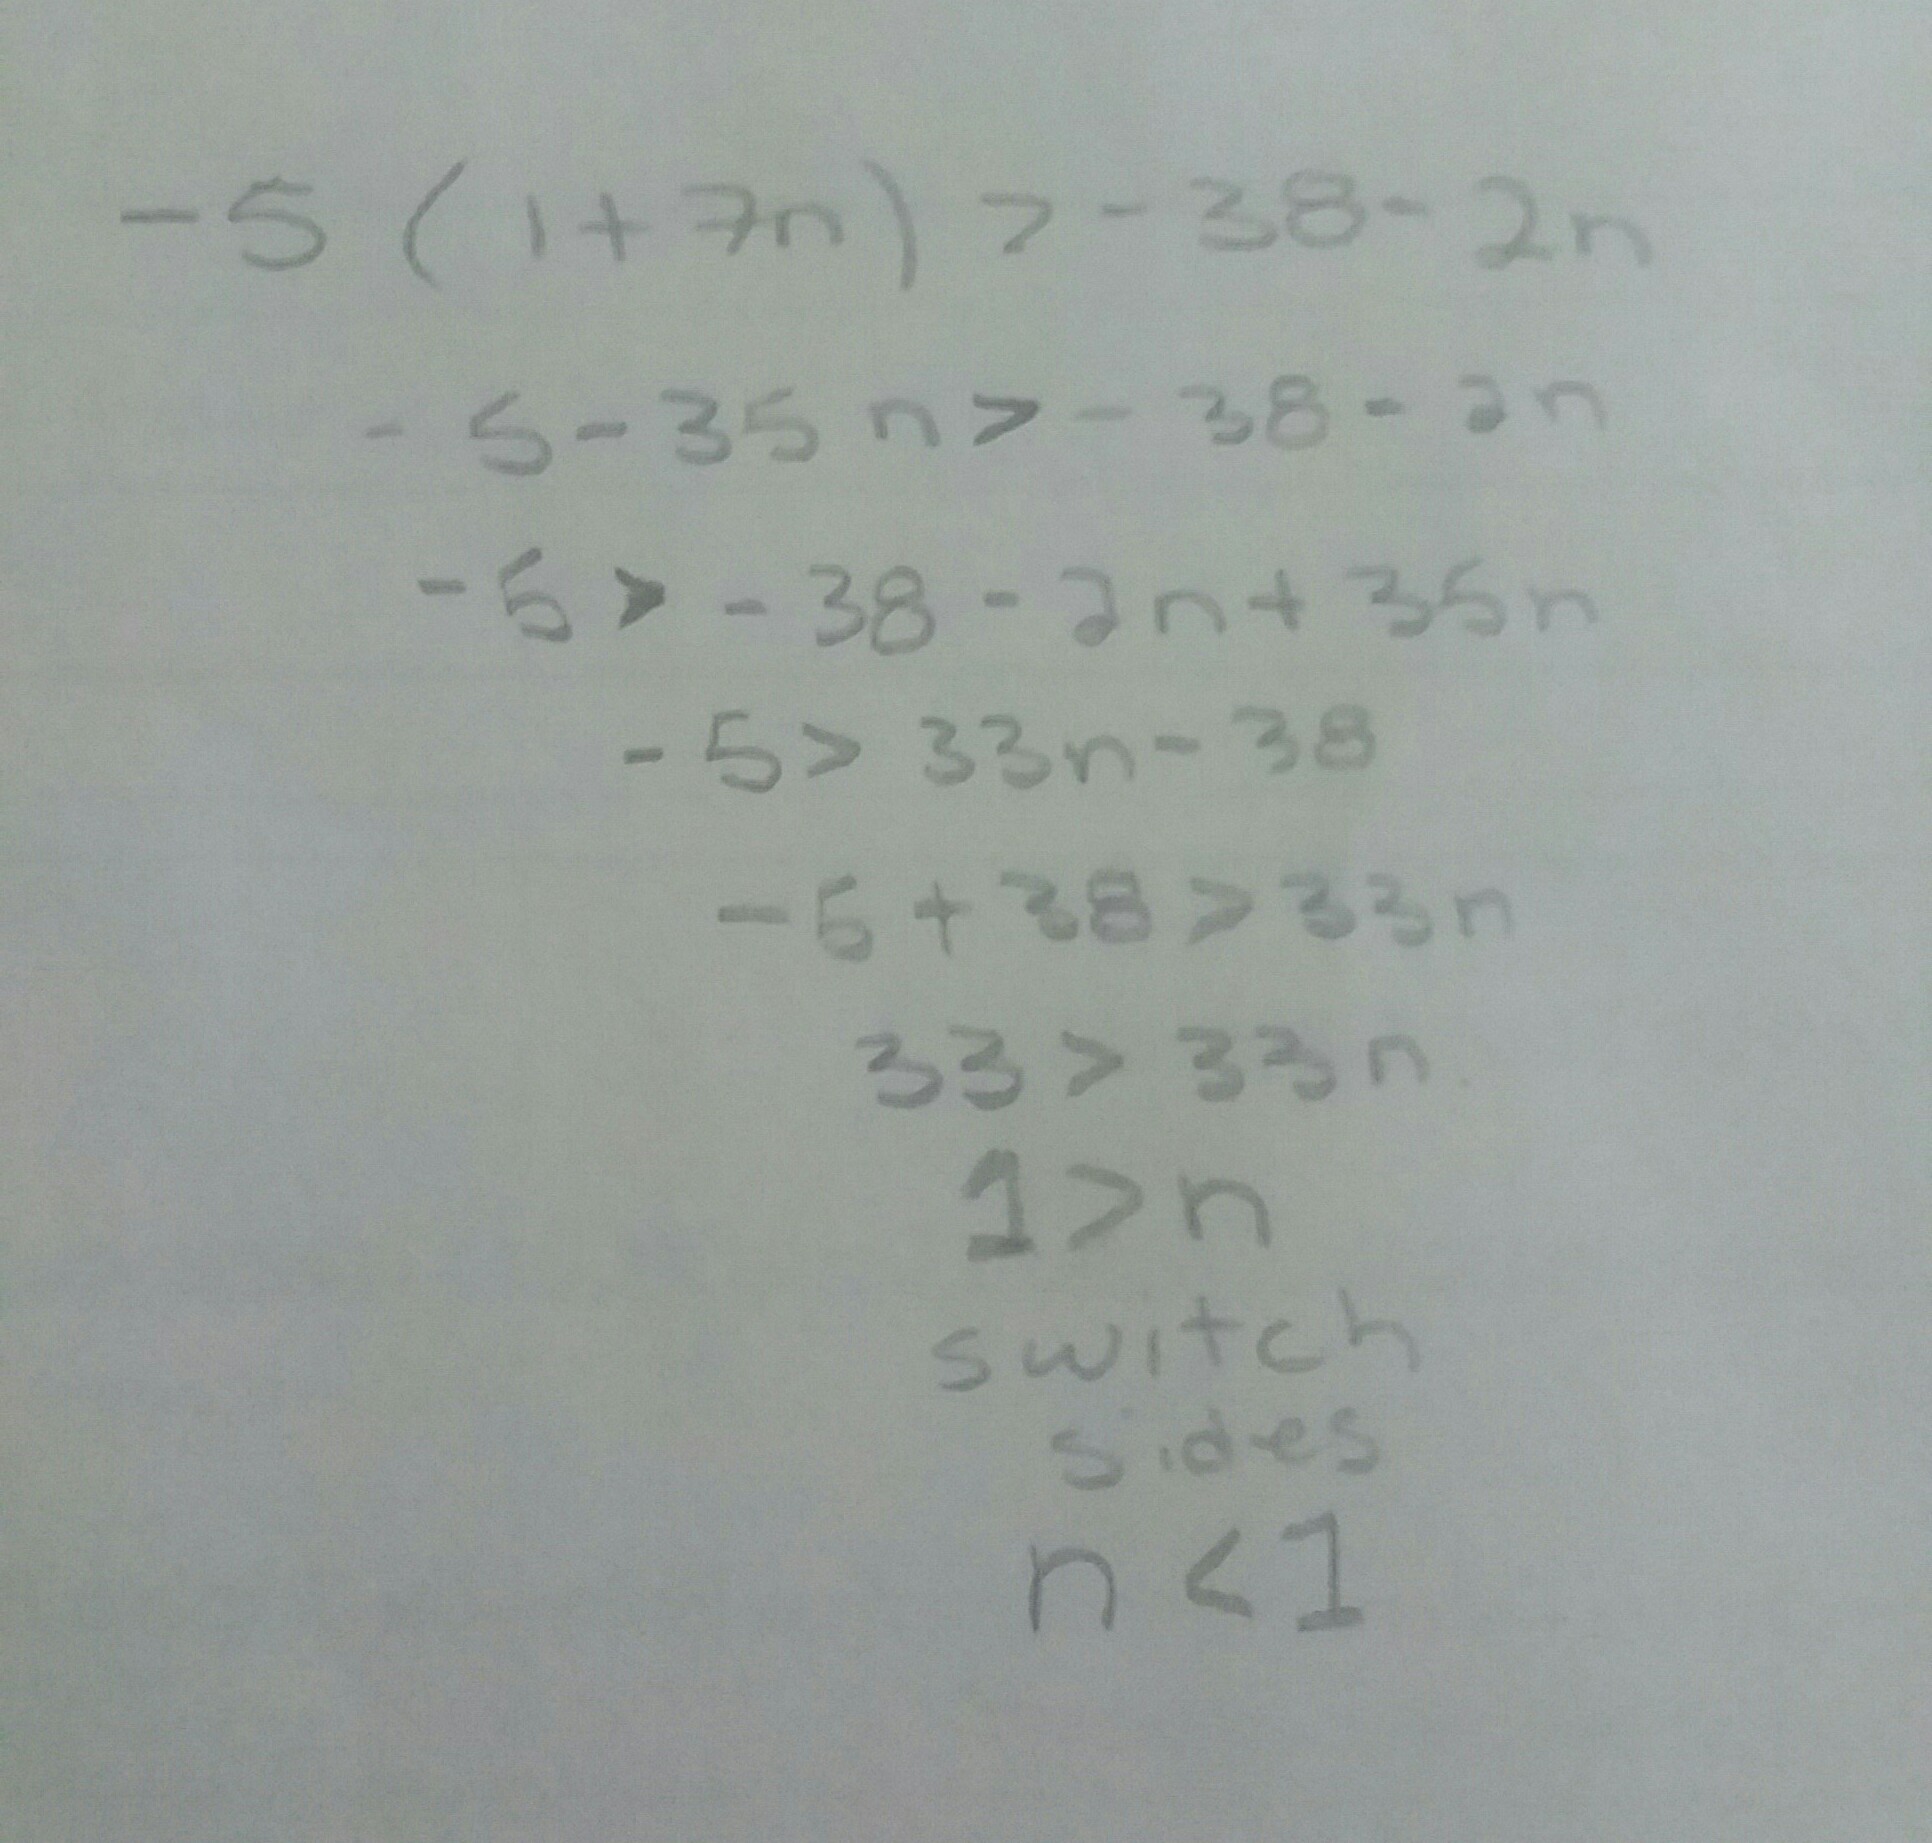 -5 (1+7n) > -38-2n
-5-35n > -38-2n
-5 > -38-2n+35n
-5 > 33n-38
-5+38 > 33n
33 > 33n
1 > n
switch
sides
n < 1